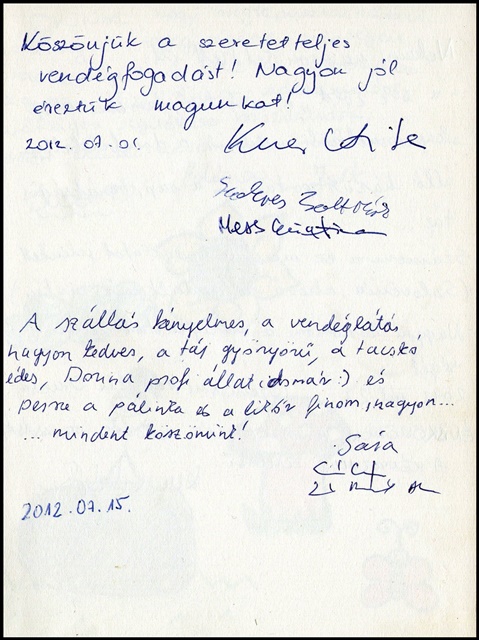 Köszönjük a szeretetteljes
vendégfogadást! Nagyon jól
éreztük magunkat!
2012. 07. 01.
A szállás kényelmes, a vendéglátás
nagyon kedves, a táj gyönyörű, a tacskó
édes, Dorina profi állatidomár :) és
persze a pálinka és a likőr finom, nagyon...
... mindent köszönünk!
Sára
Cici
2012. 07. 15.